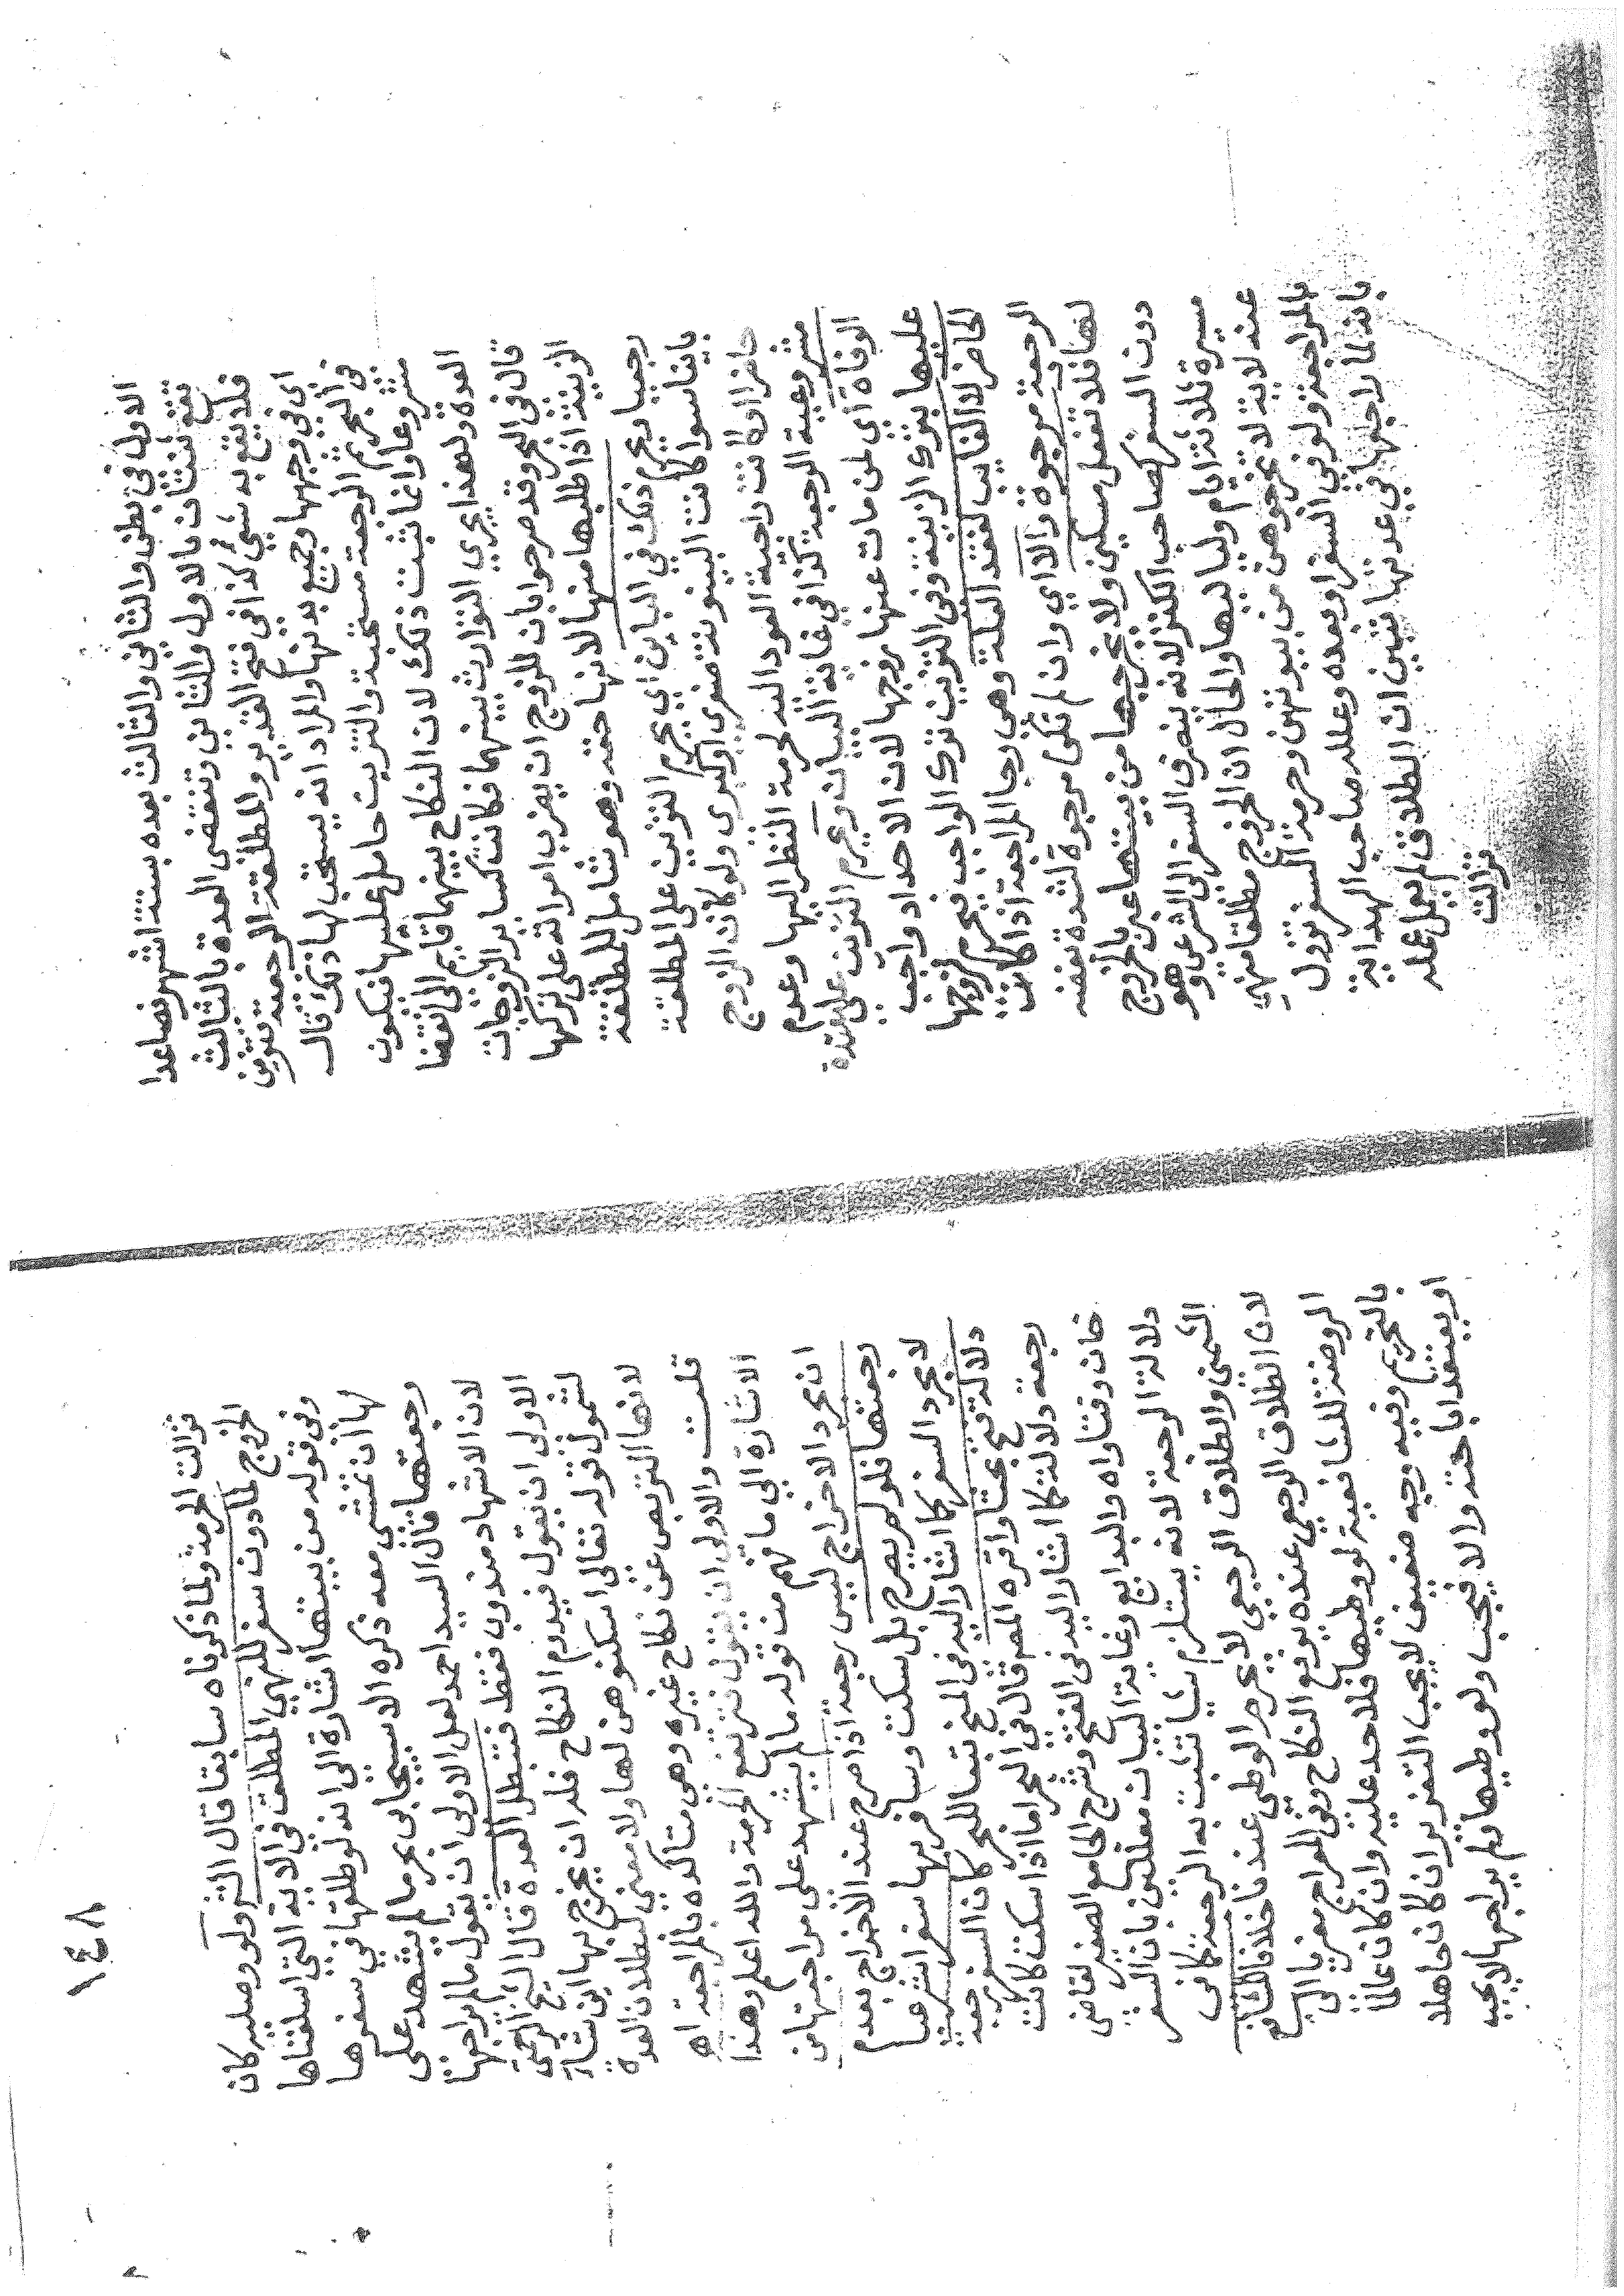 الاول في بطن والثاني والثالث بعده بستة اشهر فصاعدا
تقع ثنتان بالاول والثاني وتنقضي العدة بالثالث
فلا يقع به شيء كذا في فتح القدير والمطلقة الرجعية تتزين
اي في وجهها وجميع بدنها والمراد انه يستحب لها ذلك قال
في البحر ثم الرجعة مستحبة والتزين حامل عليها فيكون
مشروعا وانما يثبت ذلك لان النكاح بينهما قايم الى انقضا
العدة ولهذا يجري التوارث بينهما فكانت كسائر الزوجات
قال في البحر وقد صرحوا بان للزوج ان يضرب امراته على تركها
الزينة اذا طلبها منها لانها حقه وهو شامل للمطلقة
رجعيا ويحرم ذلك في الباين اي يحرم التزين على المطلقة
باينا سوا كانت البينونة صغرى او كبرى ولو كان الزوج
حاضرا او كانت راجية العود اليه لحرمة النظر اليها وعدم
مشروعية الرجعة كذا في غاية البيان ويحرم التزين على معتدة
الوفاة اي لمن مات عنها زوجها لان الاحداد واجب
عليها بترك الزينة وفي التزين ترك الواجب فيحرم لزوجها
الحاضر لا الغايب لفقد العلة وهي رجا المراجعة اذا كانت
الرجعة مرجوة والا اي وان لم تكن مرجوة لشدة بغضه
لها فلا تفعل مسكين ولا يخرجها من بيتها عبر بالخروج
دون السفر كصاحب الكنز لانه لا فرق السفر الشرعي وهو
مسيرة ثلاثة ايام ولياليها والحال ان الخروج مطلقا منهي
عنه لاية لا تخرجوهن من بيوتهن وحرمة السفر تزول
بالمراجعة ولو في السفر او بعده وعلله صاحب الهداية
بانه لما راجعها في عدتها تبين ان الطلاق لم يعمل عمله
فزالت
١٤٨
فزالت الحرمة ولما ذكرناه سابقا قال الش ولو وصليه كان
الخروج لما دون سفر للنهي المطلق في الاية التي اسلفناها
وفي قوله من بيتها اشارة الى انه لو طلقها في سفرها
لها ان تمشي معه ذكره الاسبيجابي بحر ما لم يشهد على
رجعتها قال السيد احمد لعل الاولى ان يقول ما لم يراجعها
لان الاشهاد مندوب فقط فتبطل العدة قال الشيخ الرحمتي
الاولى ان يقول فيدوم النكاح فله ان يخرج بها اين شاء
لشمول قوله تعالى اسكنوهن لها ولا معنى لبطلان العدة
لانها التربص عن نكاح غيره وهي متاكدة بالمراجعة اه
قلت والاولى ان يقول فترتفع الحرمة والله اعلم وهذا
الاشارة الى ما فهم من قوله ما لم يشهد على مراجعتها من
ان مجرد الاخراج ليس رجعة اذا صرح عند الاخراج بعدم
رجعتها فلو لم يصرح بل سكت وسافر بها سفرا شرعيا
لا مجرد السفر كما اشار اليه في المنح تبعا للبحر كان السفر رجعة
دلالة فتح بحثا واقره المصر قال في البحر اما اذا سكت كانت
رجعة دلالة كما اشار اليه في الفتح وشرح الجامع الصغير لقاضي
خان وفتاواه والبدايع وغاية البيان معللين بان السفر
دلالة الرجعة لانه يستلزم شيا تثبت به الرجعة كما في
الشمني والطلاق الرجعي لا يحرم الوطئ عندنا خلافا للشافعي
لان الطلاق الرجعي عنده يرفع النكاح وفي المعراج معزيا الى
الروضة للشافعية لو وطيها فلا حد عليه وان كان عالما
بالتحريم وفيه وجه ضعيف لا يجب التعزير ان كان جاهلا
او يعتقد اباحته والا فيجب ولو وطيها ولم يراجعها لا يجب